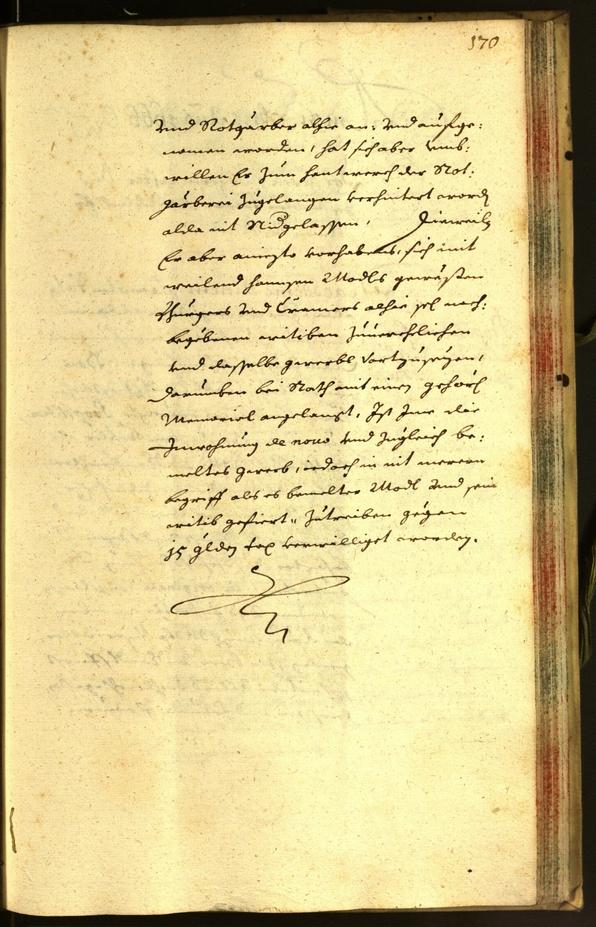 170
vnd Rotgärber alhie an: vnd aufge:
nomen worden, hat sich aber vmb:
willen Er zum hantwerch der Rot:
gärberei zugelangen verhintert word
alda nit Nidgelassen, Dieweiln
Er aber aniezto vorhabens, sich mit
weilend hannsen Modls gewesten
Burgers vnd Cramers alhie sel: nach:
gegebenen witiben zuuerehelichen
vnd dasselbe gewerb vortzusezen,
darumben bei Rath mit einen gehors
Memorial angelangt, Ist Ime die
Inwohnung de nouo vnd zugleich be:
meltes gewerb, iedoch in nit merern
begriff als es bemelter Modl vnd sein
witib gefiert, zutreiben gegen
15 glden tax verwilliget worden.